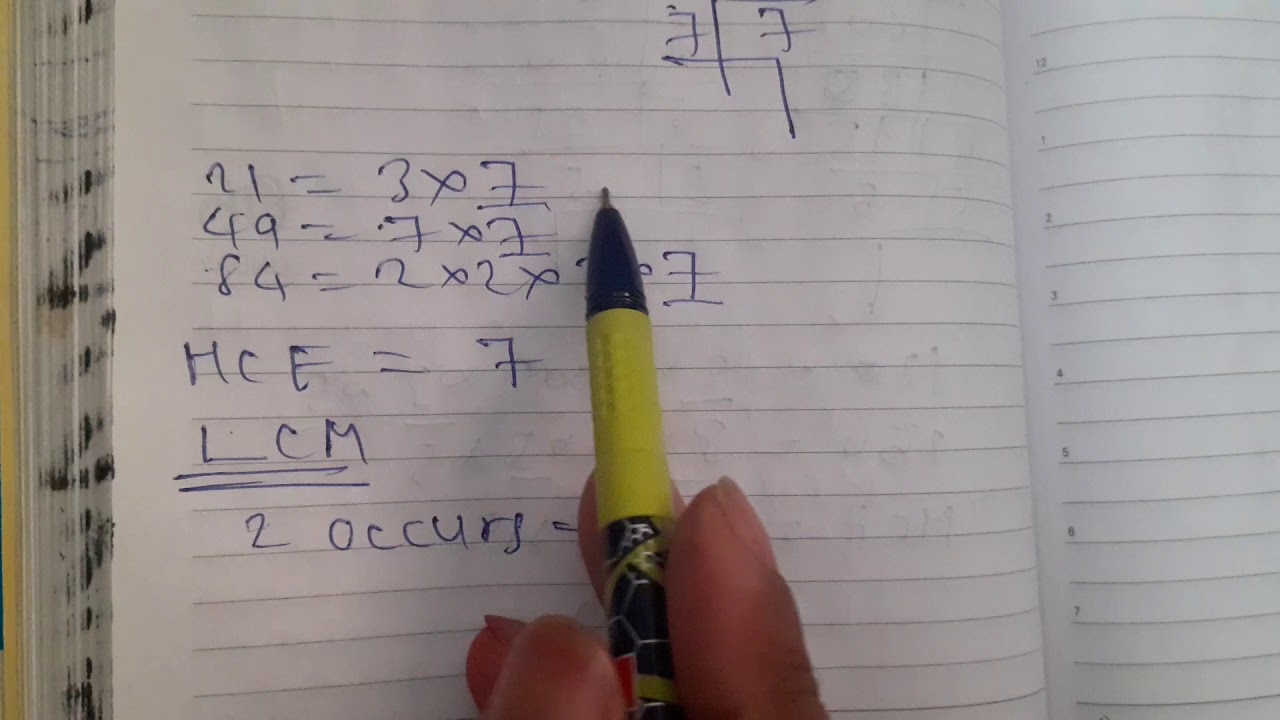 7 7
12
21 = 3 × 7
1
49 = 7 × 7
2
84 = 2 × 2 × 7
3
HCF = 7
4
LCM
5
2 occurs =
6
7